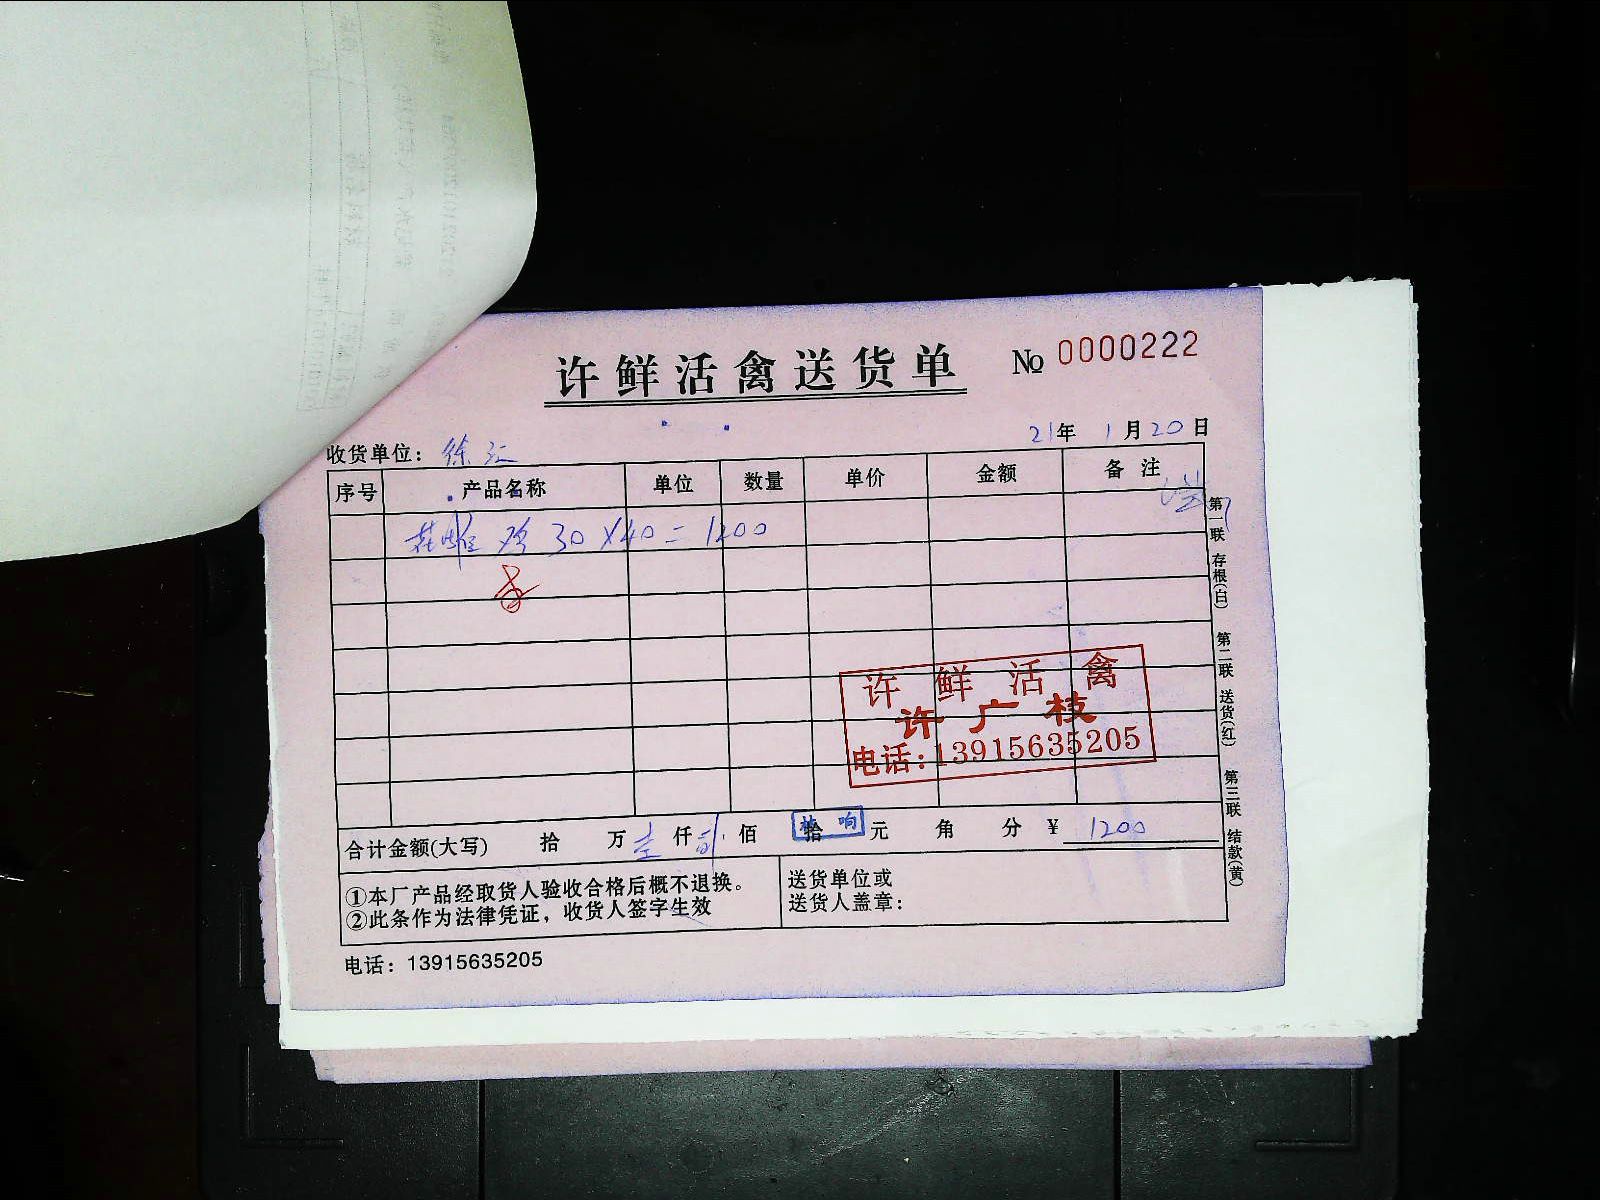 许鲜活禽送货单 № 0000222
收货单位：徐汇 21年 1月20日
序号 产品名称 单位 数量 单价 金额 备注
花雌鸡 30×40=1200
许鲜活禽
许广枝
电话:13915635205
合计金额(大写) 拾 万壹仟贰佰 拾 元 角 分 ¥ 1200
①本厂产品经取货人验收合格后概不退换。
②此条作为法律凭证，收货人签字生效
送货单位或
送货人盖章：
电话：13915635205
第一联 存根(白) 第二联 送货(红) 第三联 结款(黄)